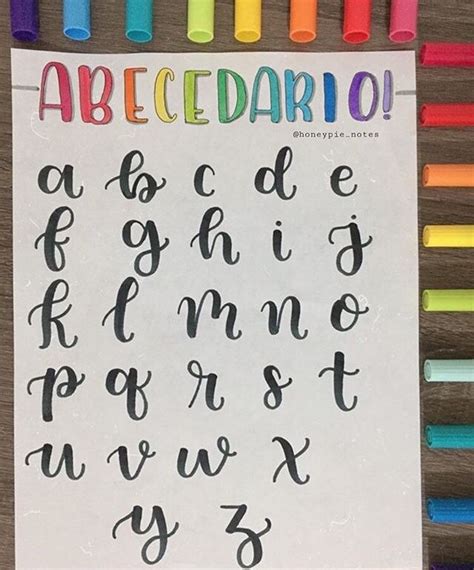 ABECEDARIO!
@honeypie_notes
a b c d e
f g h i j
k l m n o
p q r s t
u v w x
y z